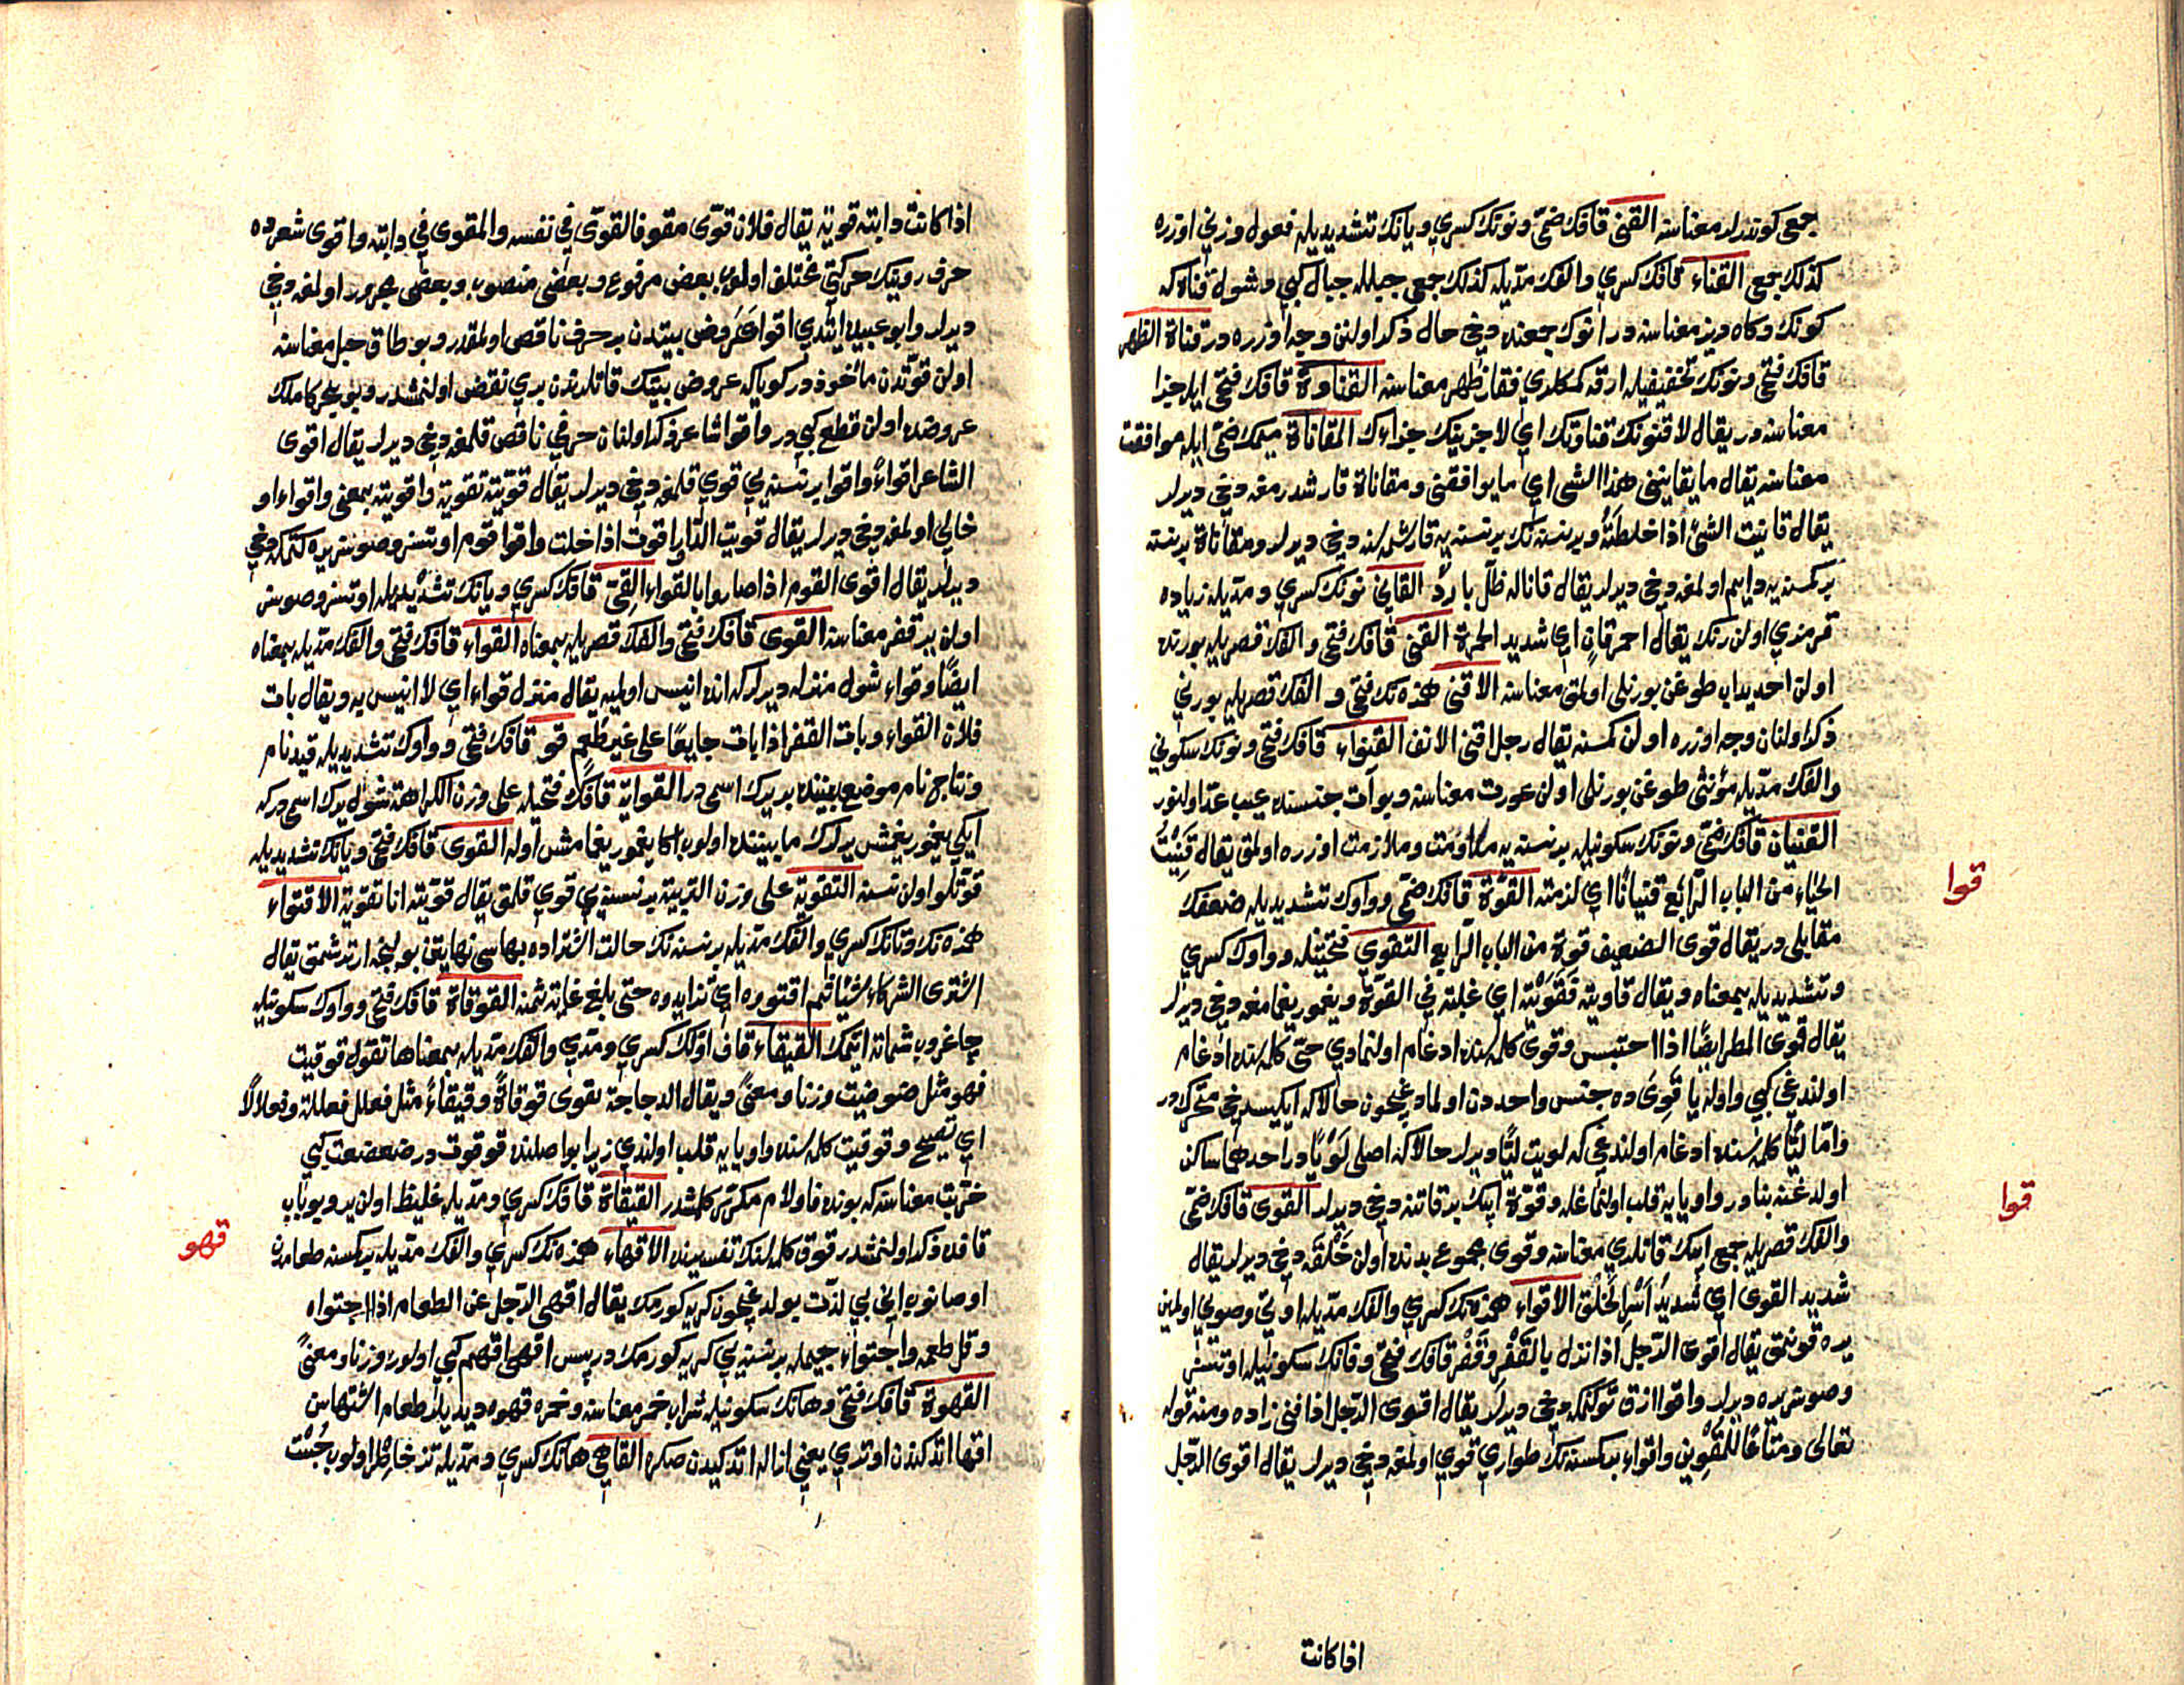 جمعى كوندرلر معناسنه القنى قافك ضمّى ونونك كسرى ويانك تشديديله فعول وزنى اوزره
كذلك جمعى القناء قافك كسرى والفك مدّيله كذلك جمعى جبلله جبال كبى وشول قناة كه
كونك وكاه ديز معناسنه در انوك جمعنده دخى حال ذكر اولنن وجه اوزره در قناة الظهر
قافك فتحى ونونك تخفيفيله ارقه كمكلرى فقار ظهر معناسنه القناوة قافك فتحى ايله جزا
معناسنه در يقال لاقنونك قناوتك اي لاجزينك جزاءك المقاناة ميمك ضمّى ايله موافقت
معناسنه يقال ما يقانينى هذا الشى اي ما يوافقنى ومقاناة قارشدرمغه دخى ديرلر
يقال قانيت الشئ اذا خلطته وبر نسنه نك بر نسنه يه قارشمه سنه دخى ديرلر ومقاناة بر نسنه
بر كمسنه يه دايم اولمغه دخى ديرلر يقال قاناله ظلّ بارد القانى نونك كسرى ومدّيله زياده
قرمزى اولن رنك يقال احمر قانٍ اي شديد الحمرة القنى قافك فتحى والفك قصريله بورنده
اولن احديداب طوغن بورنلى اولمق معناسنه الاقنى همزه نك فتحى و الفك قصريله بورنى
ذكر اولنان وجه اوزره اولن كمسنه يقال رجل اقنى الانف القنواء قافك فتحى ونونك سكونى
والفك مدّيله مؤنثى طوغن بورنلى اولن عورت معناسنه وبو آت جنسنده عيب عدّ اولنور
القنيان قافك ضمّى ونونك سكونيله بر نسنه يه مداومت وملازمت اوزره اولمق يقال قَنِيتُ
الحياء من الباب الرّابع قنيانًا اي لزمته القوّة قافك ضمّى وواوك تشديديله ضعفك
مقابلى در يقال قوى الضعيف قوة من الباب الرّابع التقوى فتحتينله وواوك كسرى
وتشديديله بمعناه ويقال قاويته فَقَوَيْته اي غلبته فى القوّة ويغمور يغمامغه دخى ديرلر
يقال قوى المطر ايضًا اذا احتبس وقوى كلمه سنده ادغام اولنمادى حتّى كلمه سنده ادغام
اولندغى كبى واوله يا قَوِىَ ده جنس واحددن اولمادغيچون حالا كه ايكيسى دخى متحرّكدر
وامّا ليًّا كلمه سنده ادغام اولندغى كه لويت ليًّا ديرلر حالا كه اصلى لَوْيًا در احدهما ساكن
اولدغنه بنا در واو يا يه قلب اولنمغله وقوّة ايپك بر قاتنه دخى ديرلر القوى قافك ضمّى
والفك قصريله جمعى ايپك قاتلرى معناسنه وقوى مجموع بدنده اولن خَلْقَه دخى ديرلر يقال
شديد القوى اي شديدُ اَسْرِ الخَلْق الاقواء همزه نك كسرى والفك مدّيله اوتى وصويى اولمين
يره قونمق يقال اقوى الرّجل اذا نزل بالقَفْر وقَفْر قافك فتحى وفانك سكونيله اوتسز
وصوسز يره ديرلر واقوا ازق توكنمكه دخى ديرلر يقال اقوى الرّجل اذا فنى زاده ومنه قوله
تعالى ومتاعًا للمُقْوِين واقواء بر كمسنه نك طوارى قوى اولمغه دخى ديرلر يقال اقوى الرّجل
قوا
قوا
اذا كانت
اذا كانت دابته قويّة يقال فلان قوّى مقو فالقوّى فى نفسه والمقوى فى دابته واقوى شعرده
حرف روينك حركتى مختلف اولوب بعض مرفوع وبعض منصوب وبعض مجرور اولمغه دخى
ديرلر وابو عبيده ايتدى اقوا عَرُوض بيتدن بر حرف ناقص اولمقدر وبو طاق حبل معناسنه
اولن قوّتدن مأخوذ در كويا كه عروض بيتك قاتلرندن برى نقض اولنمشدر وبو بحر كاملك
عروضنده اولن قطع كبى در واقوا شاعر ذكر اولنان حرفى ناقص قلمغه دخى ديرلر يقال اقوى
الشاعر اقواءً واقوا بر نسنه يى قوى قلمغه دخى ديرلر يقال قوّيته تقوية واقويته بمعنى واقواء او
خالى اولمغه دخى ديرلر يقال قويت الدّار اقوت اذا خلت واقوا قوم اوتسز وصوسز يره كتمكه دخى
ديرلر يقال اقوى القوم اذا صاروا بالقواء القىّ قافك كسرى ويانك تشديديله اوتسز وصوسز
اولن ير قفر معناسنه القوى قافك فتحى والفك قصريله بمعناه القواء قافك فتحى والفك مدّيله بمعناه
ايضًا وقواء شول منزله ديرلر كه انده انيس اولميه يقال منزل قواء اي لا انيس به ويقال بات
فلان القواء وبات القفر اذا بات جايعًا على غير طُعم قوّ قافك فتحى وواوك تشديديله فيد نام
ونتاج نام موضع بيننده بر يرك اسمى در القواية قافك فتحيله على وزن الكراهة شول يرك اسمى در كه
ايكى يغمور يغمش يرلرك مابيننده اولوب اكا يغمور يغمامش اوله القوى قافك فتحى ويانك تشديديله
قوّتلو اولن نسنه التقوية على وزن التربية بر نسنه يى قوى قلمق يقال قوّيته انا تقوية الاقتواء
همزه نك وتانك كسرى والفك مدّيله بر نسنه نك حالت اشتراده بهاسى نهايتن بولنجه ارتدشمق يقال
اشترى الشركاء شيئا ثم اقتووه اي تزايدوه حتى بلغ غاية ثمنه القوقاة قافك فتحى وواوك سكونيله
چاغروب شماته ايتمك القيقاء قاف اوّلك كسرى ومدّى والفك مدّيله بمعناها تقول قوقيت
فهو مثل ضوضيت وزنا ومعنًى ويقال الدجاجة تقوى قوقاةً وقيقاءً مثل فعلل فعللة وفعلالًا
اي تصيح وقوقيت كلمه سنده واو يا يه قلب اولندى زيرا بو اصلنده قوقوت در ضعضعت كبى
خرّبت معناسنه كه بونده فا ولام مكرّر كلمشدر القيقاة قافك كسرى ومدّيله غليظ اولن ير وبو باب
قافده ذكر اولنمشدر قوق كلمه سنك تفسيرنده الاقهاء همزه نك كسرى والفك مدّيله بر كمسنه طعامدن
اوصانوب انى بى لذّت بولدغيچون كريه كورمك يقال اقهى الرّجل عن الطعام اذا اجتواه
وقل طعمه واجتواء جيمله بر نسنه يى كريه كورمك در پس اقهى اقهم كبى اولور وزنا ومعنًى
القهوة قافك فتحى وهانك سكونيله شراب خمر معناسنه وخمره قهوه ديديلر طعام اشتهاسن
اقها ايتدكندن اوتدرى يعنى ازاله ايتدكيدن صكره القاهى هانك كسرى ومدّيله تيز خاطر اولوب چُست
قهو